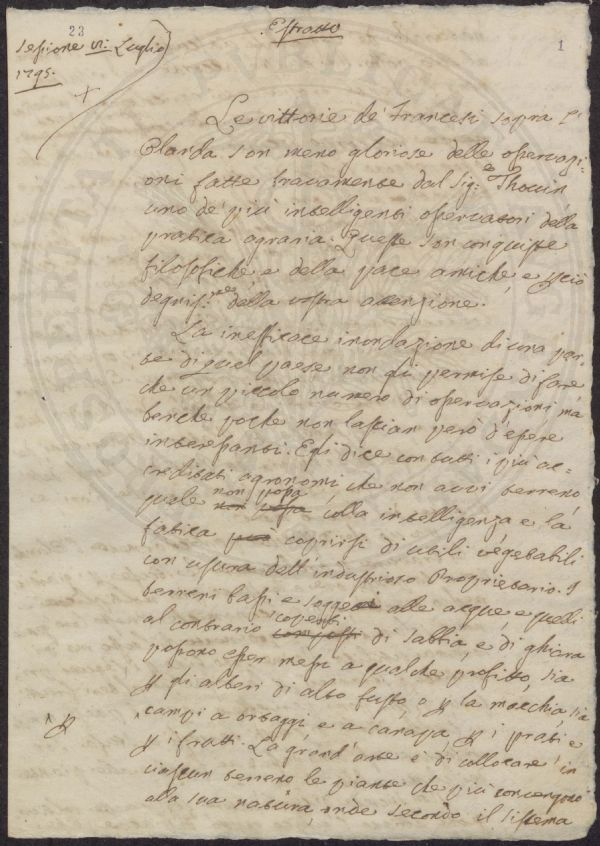 23
Estratto
1
Sessione VI: Luglio
1795.
Le vittorie de' Francesi sopra l'
Olanda son meno gloriose delle osservazi-
oni fatte bravamente dal Sig.e Thouin
uno de' più intelligenti osservatori della
pratica agraria. Queste son conquiste
filosofiche, e della pace amiche, e
degnis.me della vostra attenzione.
La inefficace inondazione di una par-
te di quel paese non gli permise di fare
che un piccolo numero di osservazioni, ma
benchè poche non lascian però d'essere
interessanti. Egli dice con tutti i più ac-
creditati agronomi, che non avvi terreno,
quale non possa colla intelligenza e la
fatica coprirsi di utili vegetabili
con usura dell'industrioso Proprietario. I
terreni bassi e soggetti alle acque, e quelli
al contrario coperti di sabbia, e di ghiara
possono esser messi a qualche profitto, sia
p gli alberi di alto fusto, o p la macchia, sia
^ p
campi a ortaggi e a canapa, p i prati e
p i frutti. La grand'arte è di collocare in
ciascun terreno le piante che più convengono
alla sua natura, onde secondo il sistema